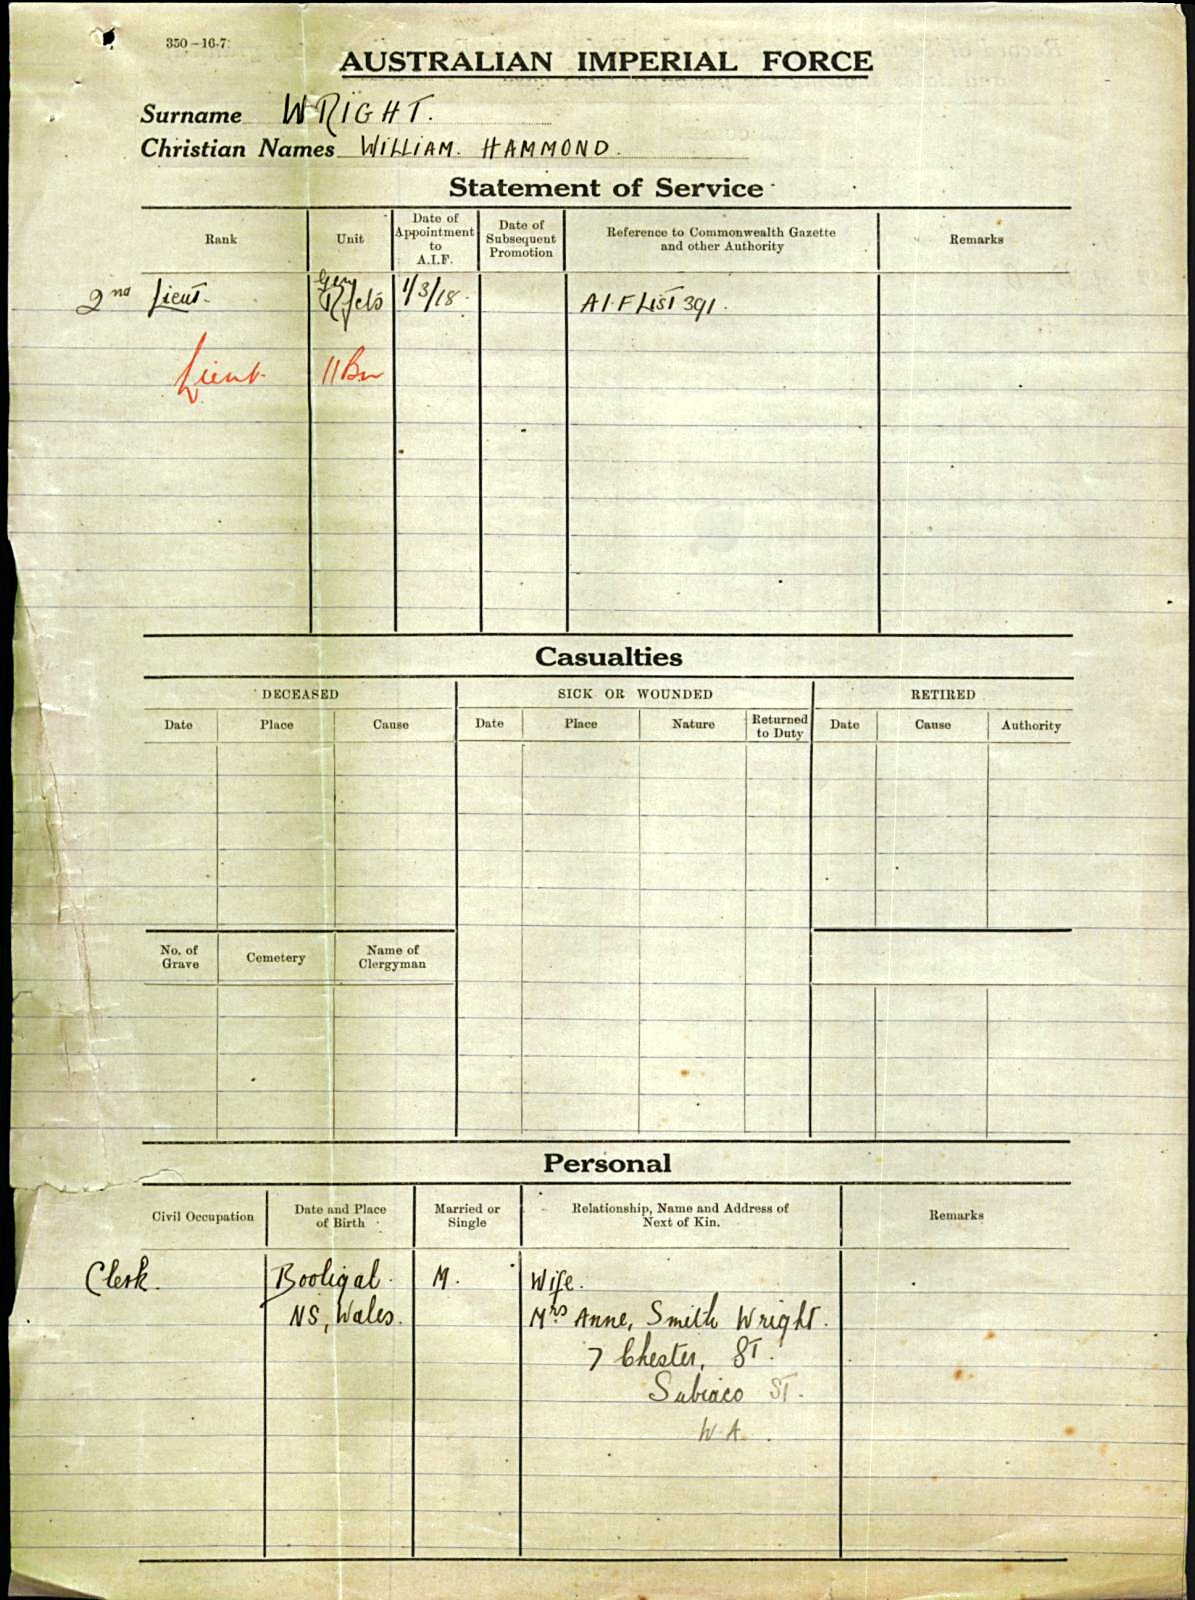 350-16-7.
AUSTRALIAN IMPERIAL FORCE
Surname WRIGHT.
Christian Names WILLIAM. HAMMOND.
Statement of Service
Rank
Unit
Date of Appointment to A.I.F.
Date of Subsequent Promotion
Reference to Commonwealth Gazette and other Authority
Remarks
2nd Lieut. Gen Rfcts 1/3/18. A.I.F LIST 391.
Lieut. 11 Bn
Casualties
DECEASED
SICK OR WOUNDED
RETIRED
Date Place Cause Date Place Nature Returned to Duty Date Cause Authority
No. of Grave
Cemetery
Name of Clergyman
Personal
Civil Occupation
Date and Place of Birth
Married or Single
Relationship, Name and Address of Next of Kin.
Remarks
Clerk. Booligal. M. Wife.
NS, Wales. Mrs Anne, Smith Wright.
7 Chester, ST.
Subiaco ST.
W.A.